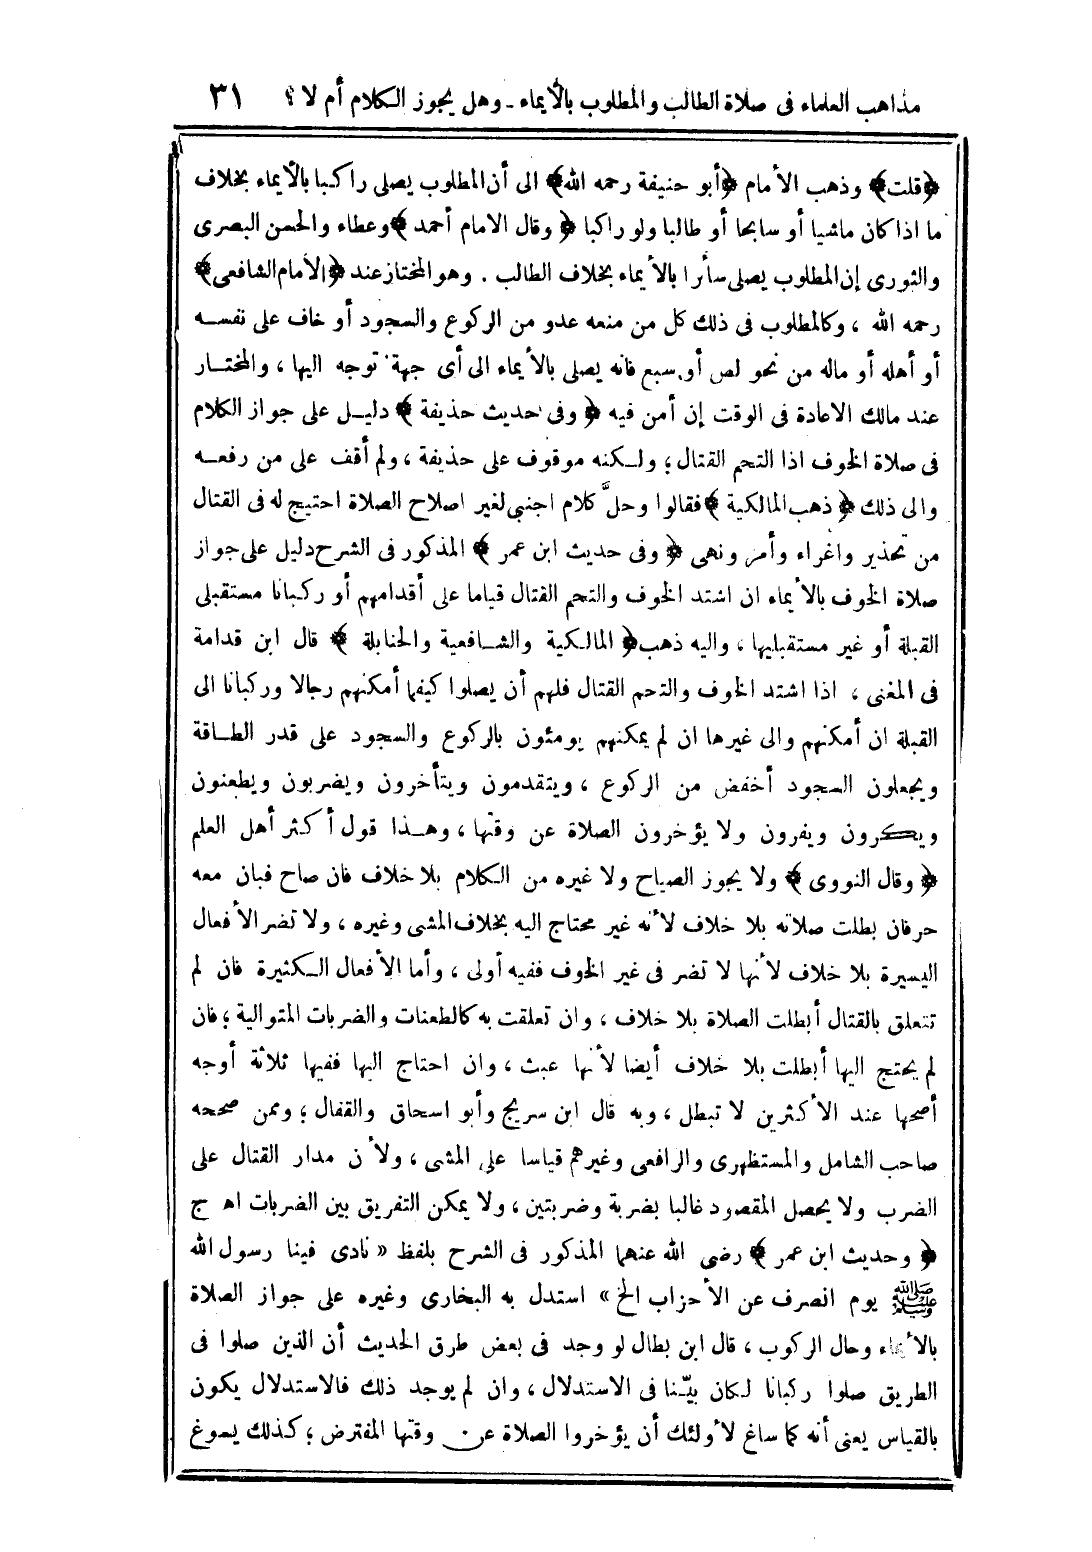 مذاهب العلماء فى صلاة الطالب والمطلوب بالأيماء - وهل يجوز الكلام أم لا ؟ ٣١
﴿قلت﴾ وذهب الأمام ﴿أبو حنيفة رحمه الله﴾ الى أن المطلوب يصلى راكبا بالأيماء بخلاف
ما اذا كان ماشيا أو سابحا أو طالبا ولو راكبا ﴿ وقال الامام أحمد ﴾ وعطاء والحسن البصرى
والثورى إن المطلوب يصلى سائرا بالأيماء بخلاف الطالب . وهو المختار عند ﴿الأمام الشافعى﴾
رحمه الله ، وكالمطلوب فى ذلك كل من منعه عدو من الركوع والسجود أو خاف على نفسه
أو أهله أو ماله من نحو لص أو سبع فانه يصلى بالأيماء الى أى جهة توجه اليها ، والمختار
عند مالك الاعادة فى الوقت إن أمن فيه ﴿ وفى حديث حذيفة ﴾ دليل على جواز الكلام
فى صلاة الخوف اذا التحم القتال ؛ ولكنه موقوف على حذيفة ، ولم أقف على من رفعه
والى ذلك ﴿ ذهب المالكية ﴾ فقالوا وحلَّ كلام اجنبى لغير اصلاح الصلاة احتيج له فى القتال
من تحذير واغراء وأمر ونهى ﴿ وفى حديث ابن عمر ﴾ المذكور فى الشرح دليل على جواز
صلاة الخوف بالأيماء ان اشتد الخوف والتحم القتال قياما على أقدامهم أو ركبانا مستقبلى
القبلة أو غير مستقبليها ، واليه ذهب ﴿ المالكية والشافعية والحنابلة ﴾ قال ابن قدامة
فى المغنى ، اذا اشتد الخوف والتحم القتال فلهم أن يصلوا كيفما أمكنهم رجالا وركبانا الى
القبلة ان أمكنهم والى غيرها ان لم يمكنهم يومئون بالركوع والسجود على قدر الطاقة
ويجعلون السجود أخفض من الركوع ، ويتقدمون ويتأخرون ويضربون ويطعنون
ويكرون ويفرون ولا يؤخرون الصلاة عن وقتها ، وهذا قول أكثر أهل العلم
﴿ وقال النووى ﴾ ولا يجوز الصياح ولا غيره من الكلام بلا خلاف فان صاح فبان معه
حرفان بطلت صلاته بلا خلاف لأنه غير محتاج اليه بخلاف المشى وغيره ، ولا تضر الأفعال
اليسيرة بلا خلاف لأنها لا تضر فى غير الخوف ففيه أولى ، وأما الأفعال الكثيرة فان لم
تتعلق بالقتال أبطلت الصلاة بلا خلاف ، وان تعلقت به كالطعنات والضربات المتوالية ؛ فان
لم يحتج اليها أبطلت بلا خلاف أيضا لأنها عبث ، وان احتاج اليها ففيها ثلاثة أوجه
أصحها عند الأكثرين لا تبطل ، وبه قال ابن سريج وأبو اسحاق والقفال ؛ وممن صححه
صاحب الشامل والمستظهرى والرافعى وغيرهم قياسا على المشى ، ولأن مدار القتال على
الضرب ولا يحصل المقصود غالبا بضربة وضربتين ، ولا يمكن التفريق بين الضربات اه ج
﴿ وحديث ابن عمر ﴾ رضى الله عنهما المذكور فى الشرح بلفظ « نادى فينا رسول الله
ﷺ يوم انصرف عن الأحزاب الخ » استدل به البخارى وغيره على جواز الصلاة
بالأيماء وحال الركوب ، قال ابن بطال لو وجد فى بعض طرق الحديث أن الذين صلوا فى
الطريق صلوا ركبانا لكان بيّنا فى الاستدلال ، وان لم يوجد ذلك فالاستدلال يكون
بالقياس يعنى أنه كما ساغ لأولئك أن يؤخروا الصلاة عن وقتها المفترض ؛ كذلك يسوغ